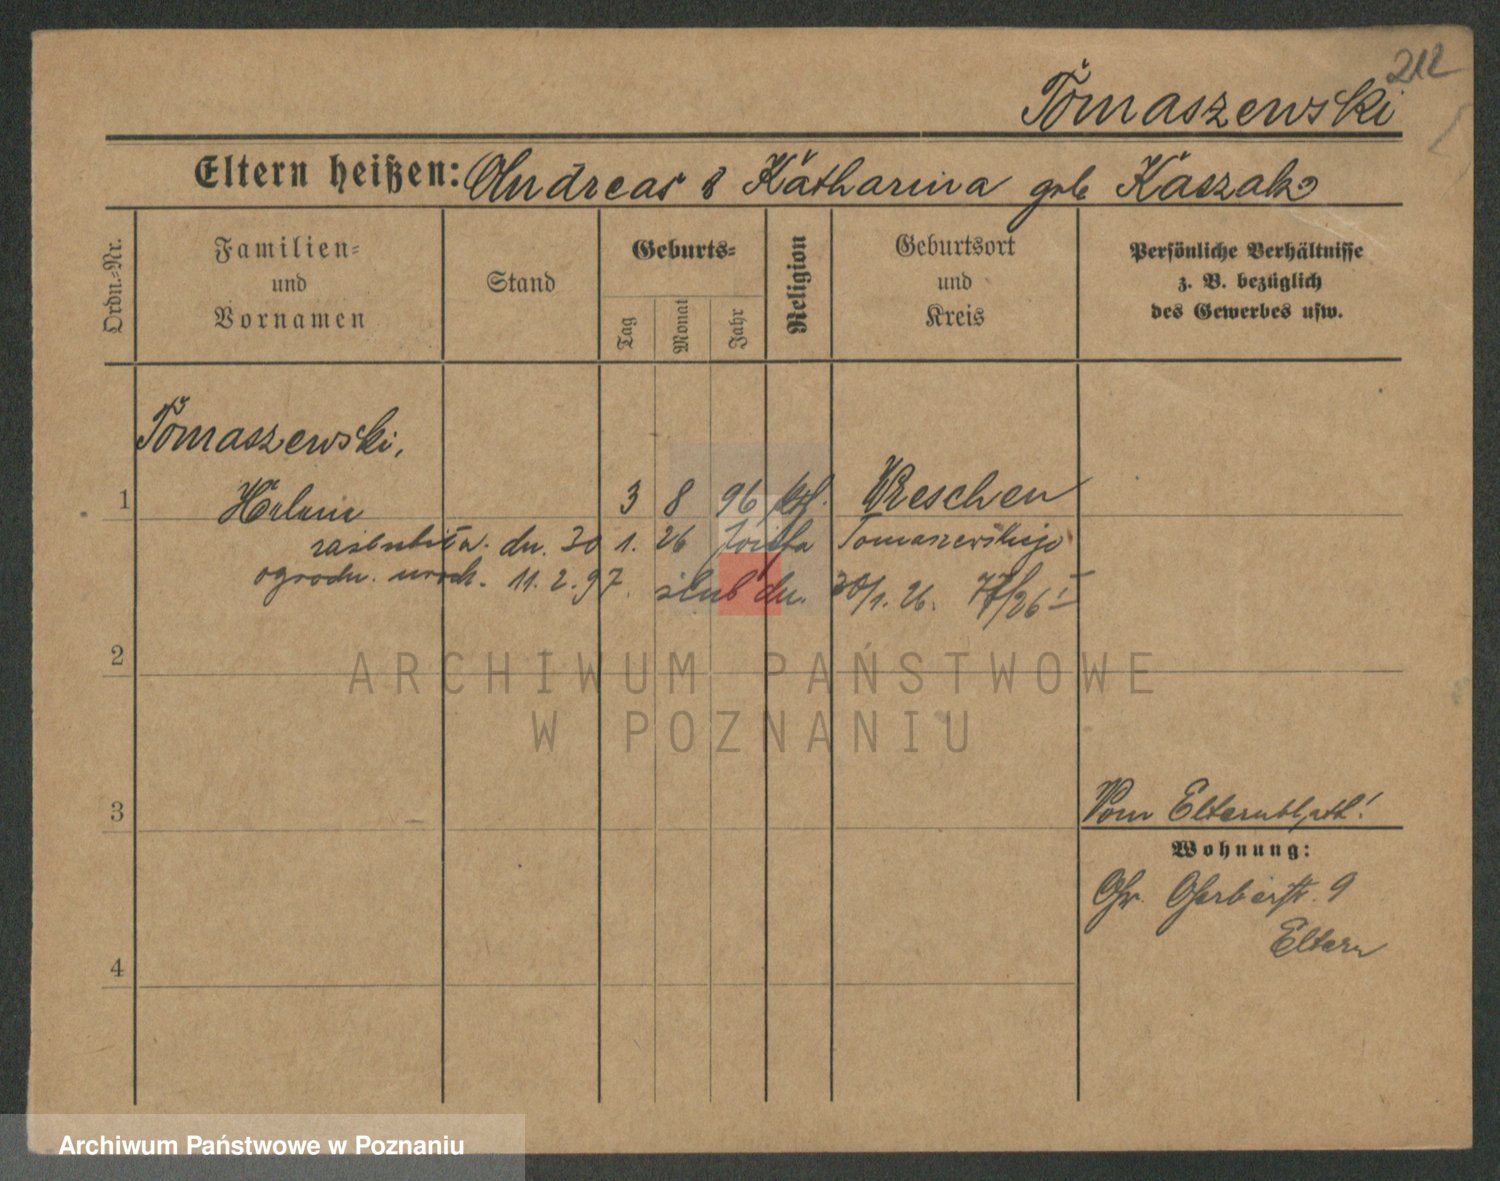 212
Tomaszewski
Eltern heißen: Andreas & Katharina geb Kaszak
Ordn.-Nr.
Familien- und Vornamen
Stand
Geburts-
Tag
Monat
Jahr
Religion
Geburtsort und Kreis
Persönliche Verhältnisse
z. B. bezüglich
des Gewerbes usw.
Tomaszewski,
1 Helene 3 8 96 kth. Wreschen
zaślubiła dn. 30 1. 26 Józefa Tomaszewskiego
ogrodn. urodz. 11. 2. 97. ślub dn. 30/1. 26. 77/26 I
2
3
Vom Elternblatt!
Wohnung:
Gr. Gerberstr. 9
Eltern
4
ARCHIWUM PAŃSTWOWE
W POZNANIU
Archiwum Państwowe w Poznaniu